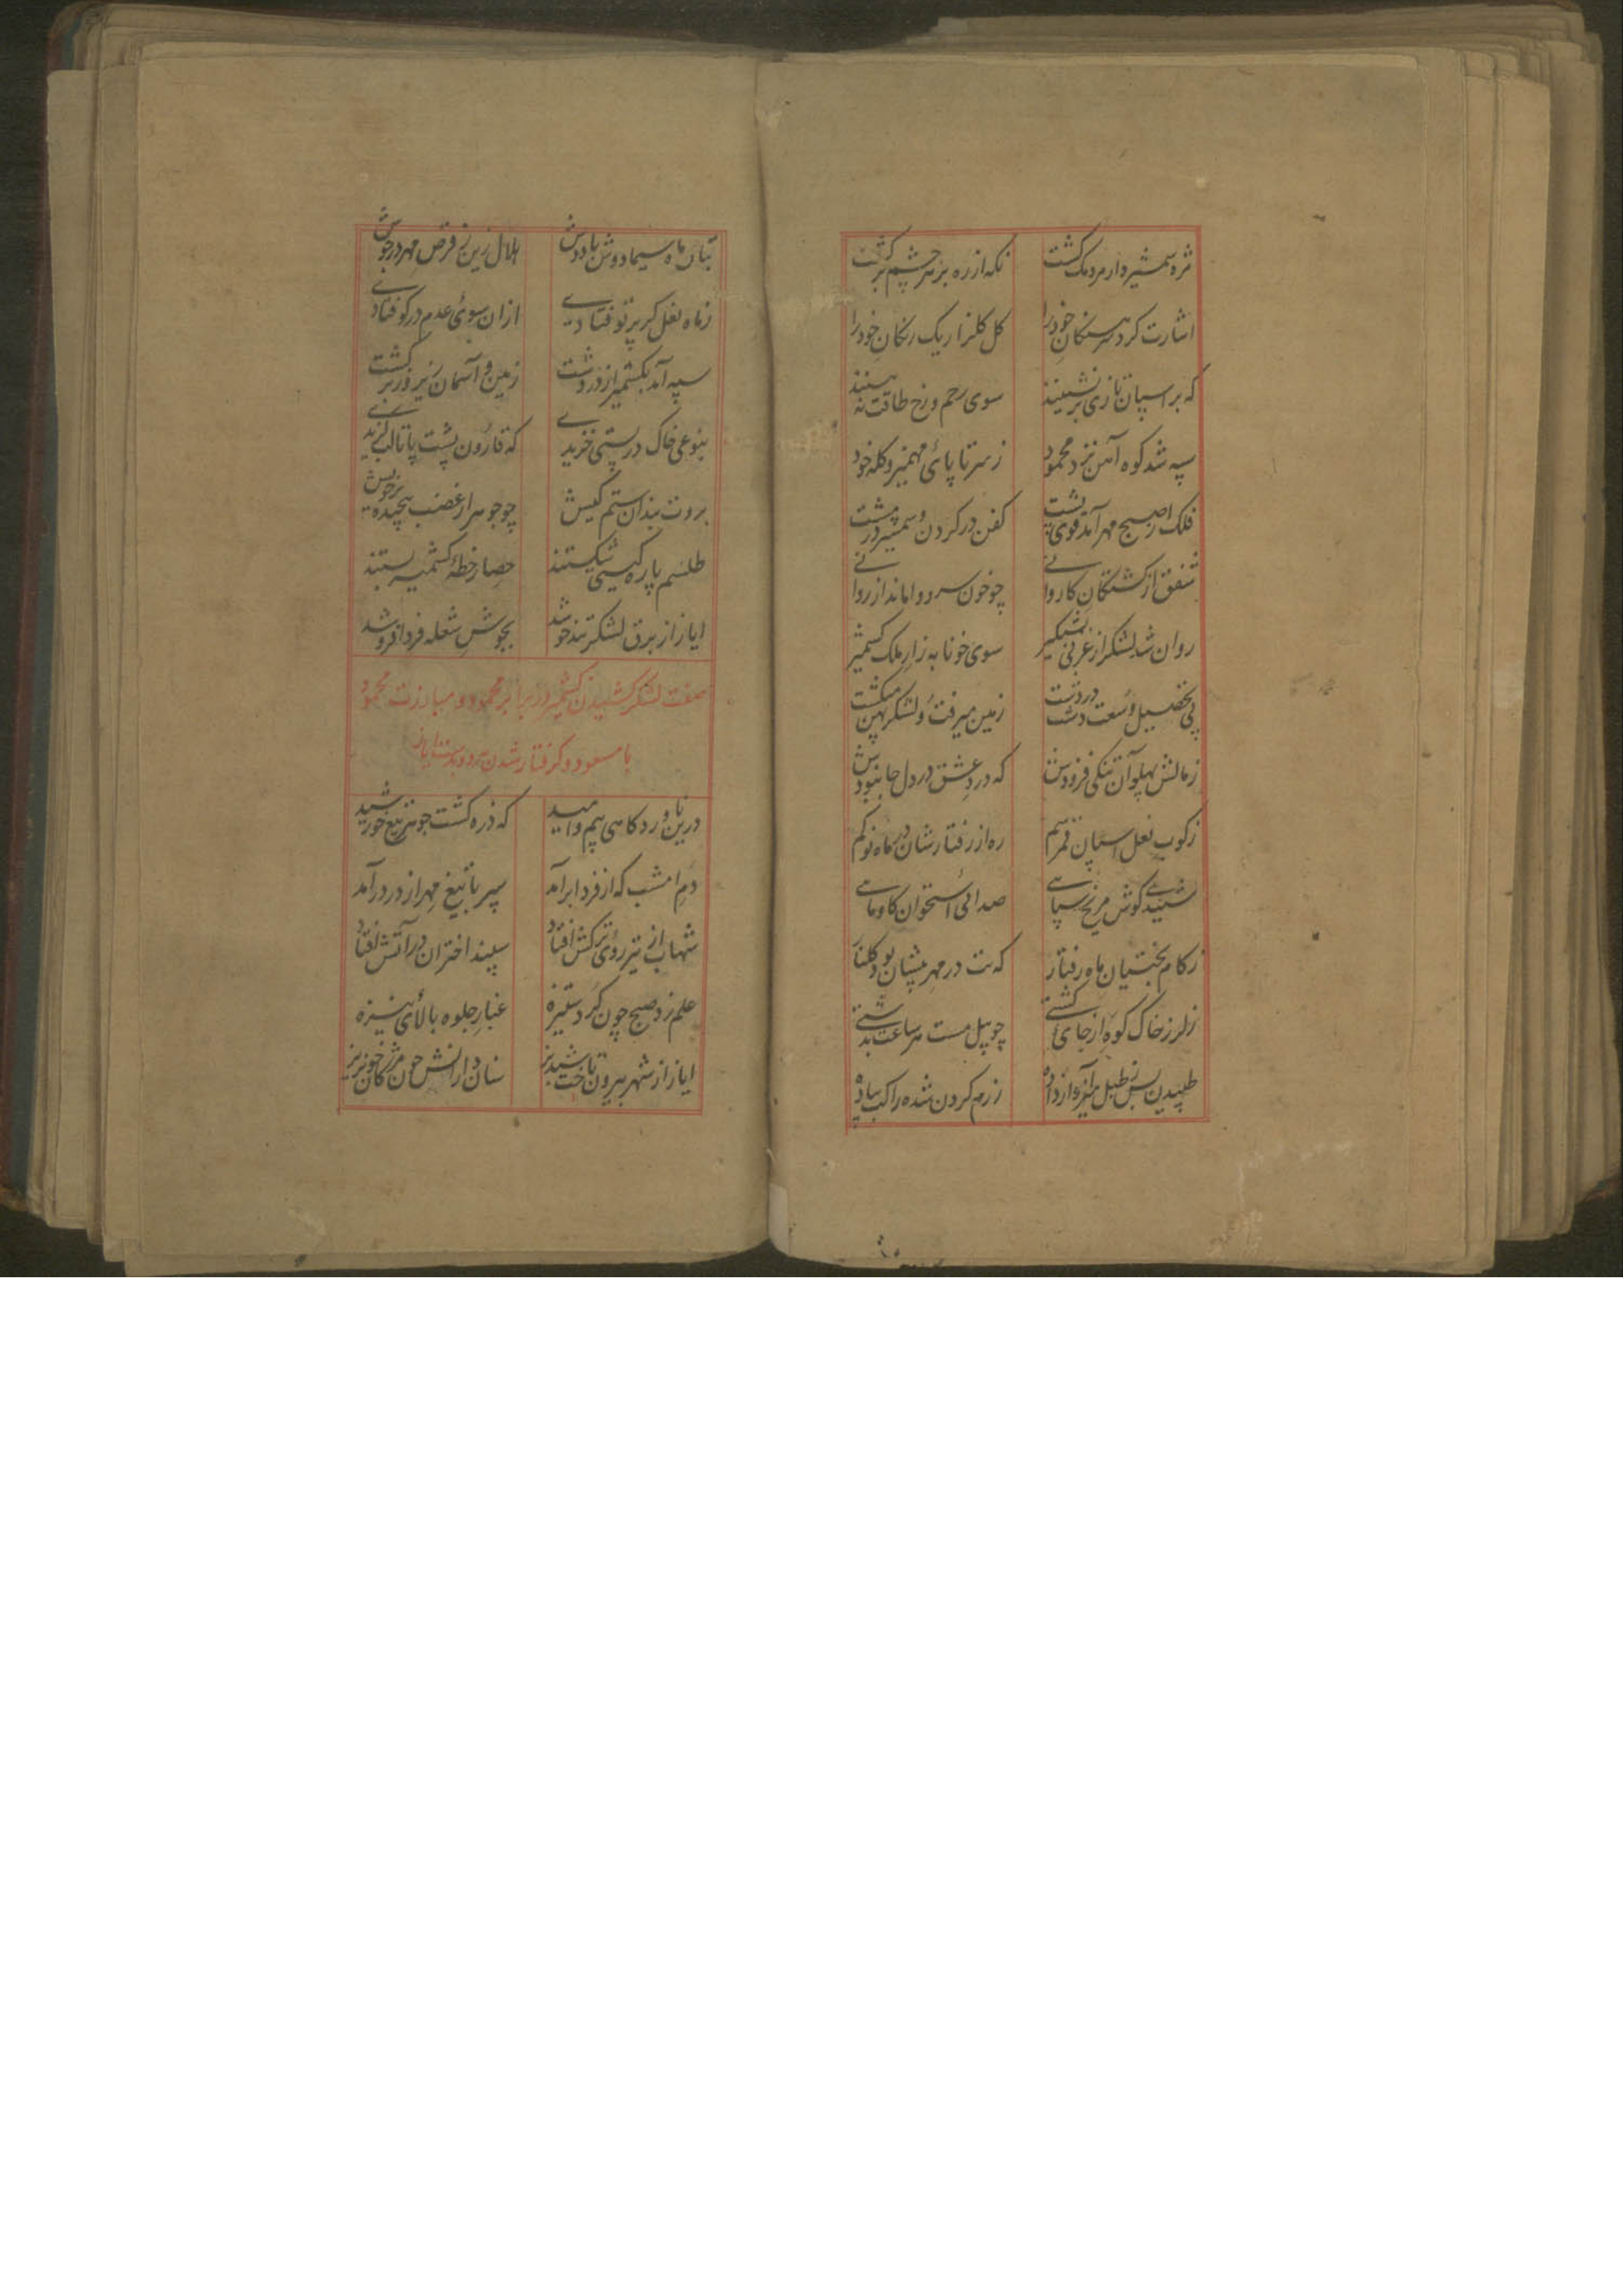 مژه شمشیر دار مردمک گشت نکه از زه بز هر چشم برگشت
اشارت کرد سرهنکان خود را کل کلزار یک رنکان خود را
که بر اسپان تازی بر نشینند سوی رحم و رخ طاقت نه بینند
سپه شد کوه آهن نزد محمود ز سر تا پائی مهمیز و کله خود
فلک را صبح مهر آمد قوی پشت کفن در کردن و شمشیر در مشت
شفق از کشتکان کاروانے چو خون سرد و اماند از روانے
روان شد لشکر از غزنی بشبکیر سوی خونابه زار ملک کشمیر
پی تحصیل وسعت دشت در دشت زمین میرفت و لشکر پهن میکشت
ز مالش پهلو آن تنکی فزودش که درد عشق در دل جا نبودش
ز کوب نعل اسپان قمر سم ره از رفتار شان در ماه نو کم
شنیدے کوش مریخ سپاہے صدائی استخوان کاو ماہے
ز کام بختیان ماه رفتار که بت در مهر پیشان بود کلنار
ز لرز خاک کوه از جای کشتے چو پیل مست هر ساعت بدشتے
طپیدن بس ز طبل آواز داده ز رم کردن شده راکب پیاده
بتان ماه سیما دوش بادوش هلال زین ز قرص مهر در جوش
ز ماه نعل کر پرتو فتادے از ان سوئ عدم در کو فتادے
سپه آمد بکشمیر از در و دشت زمین و آسمان زیر و زبر کشت
بنوعی خاک در پستی خزیدے که قارون پشت پا تا لب کزیدے
بروت بندان ستم کیش چو جوهر از غضب پیچیده بر خویش
طلسم پاره کیتی شکستند حصار خطهٔ کشمیر بستند
ایاز از برق لشکر تند خو شد بجوش شعله فردا فرو شد
صفت لشکر کشیدن کشمیر در برابر محمود و مبارزت محمود
با مسعود و کرفتار شدن هر دو بدست ایاز
درین ناورد کاهی بیم و امید که ذره کشت جوهر تیغ خورشید
دم امشب که از فردا بر آمد سپر با تیغ مهر از در در آمد
شهاب از تیر روئ ترکش افتاد سپند اختران در آتش افتاد
علم زد صبح چون کرد ستیزه غبار جلوه بالائ نیزه
ایاز از شهر بیرون تاخت شبدیز سنان دارانش چون مژکان خونریز